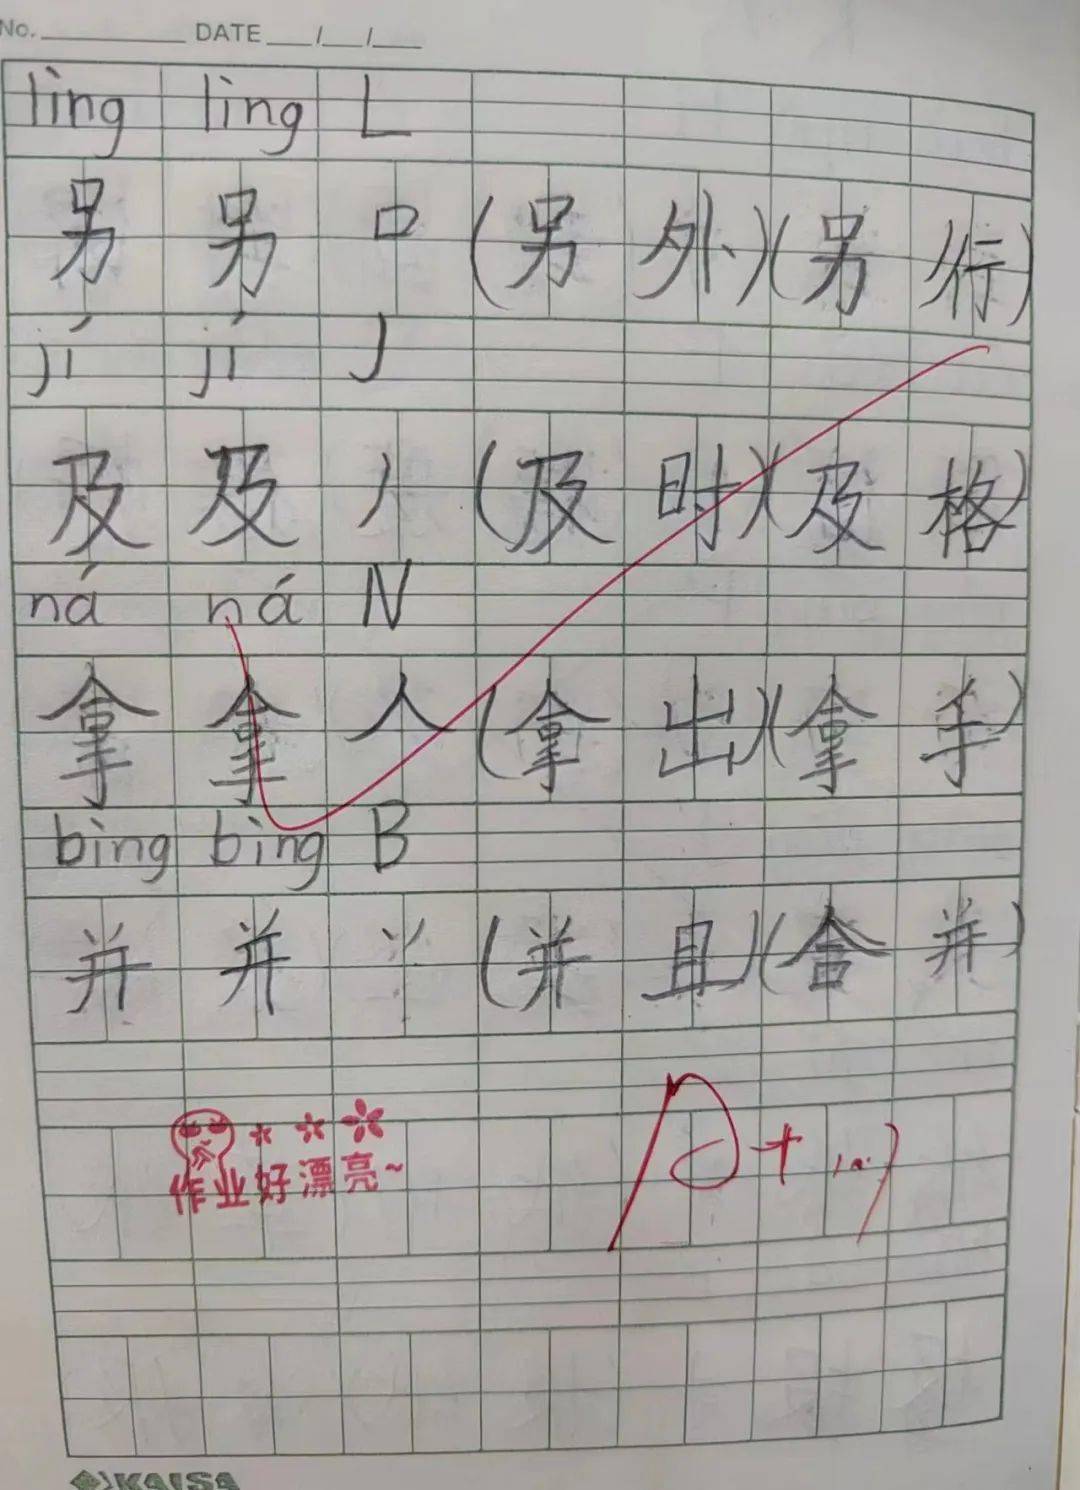 No. DATE / /
lìng lìng L
另 另 口 (另外)(另行)
jí jí J
及 及 丿 (及时)(及格)
ná ná N
拿 拿 人 (拿出)(拿手)
bìng bìng B
并 并 丷 (并且)(合并)
作业好漂亮~
A+
KAISA